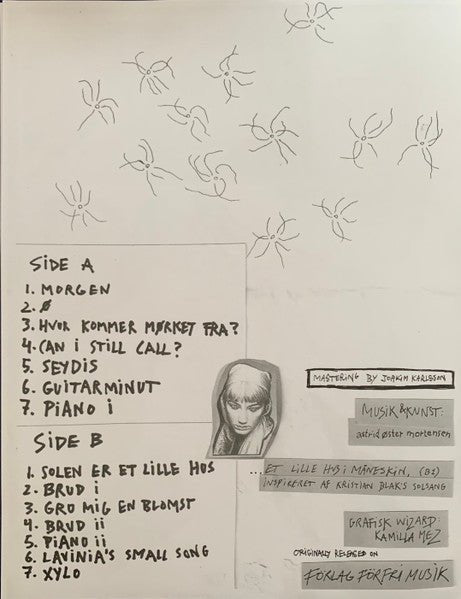 SiDE A
1. MORGEN
2. Ø
3. HVOR KOMMER MØRKET FRA?
4. CAN i STiLL CALL?
5. SEYDiS
6. GUiTARMiNUT
7. PiANO i
SiDE B
1. SOLEN ER ET LiLLE HUS
2. BRUD i
3. GRO MiG EN BLOMST
4. BRUD ii
5. PiANO ii
6. LAViNiA'S SMALL SONG
7. XYLO
MASTERiNG BY JOAKiM KARLSSON
MUSiK & KUNST:
astrid øster mortensen
...ET LiLLE HUS i MÅNESKiN, (B2)
iNSPiRERET AF KRiSTiAN BLAK'S SOLSANG
GRAFiSK WiZARD:
KAMiLLA MEZ
ORiGiNALLY RELEASED ON
FÖRLAG FÖR FRi MUSiK